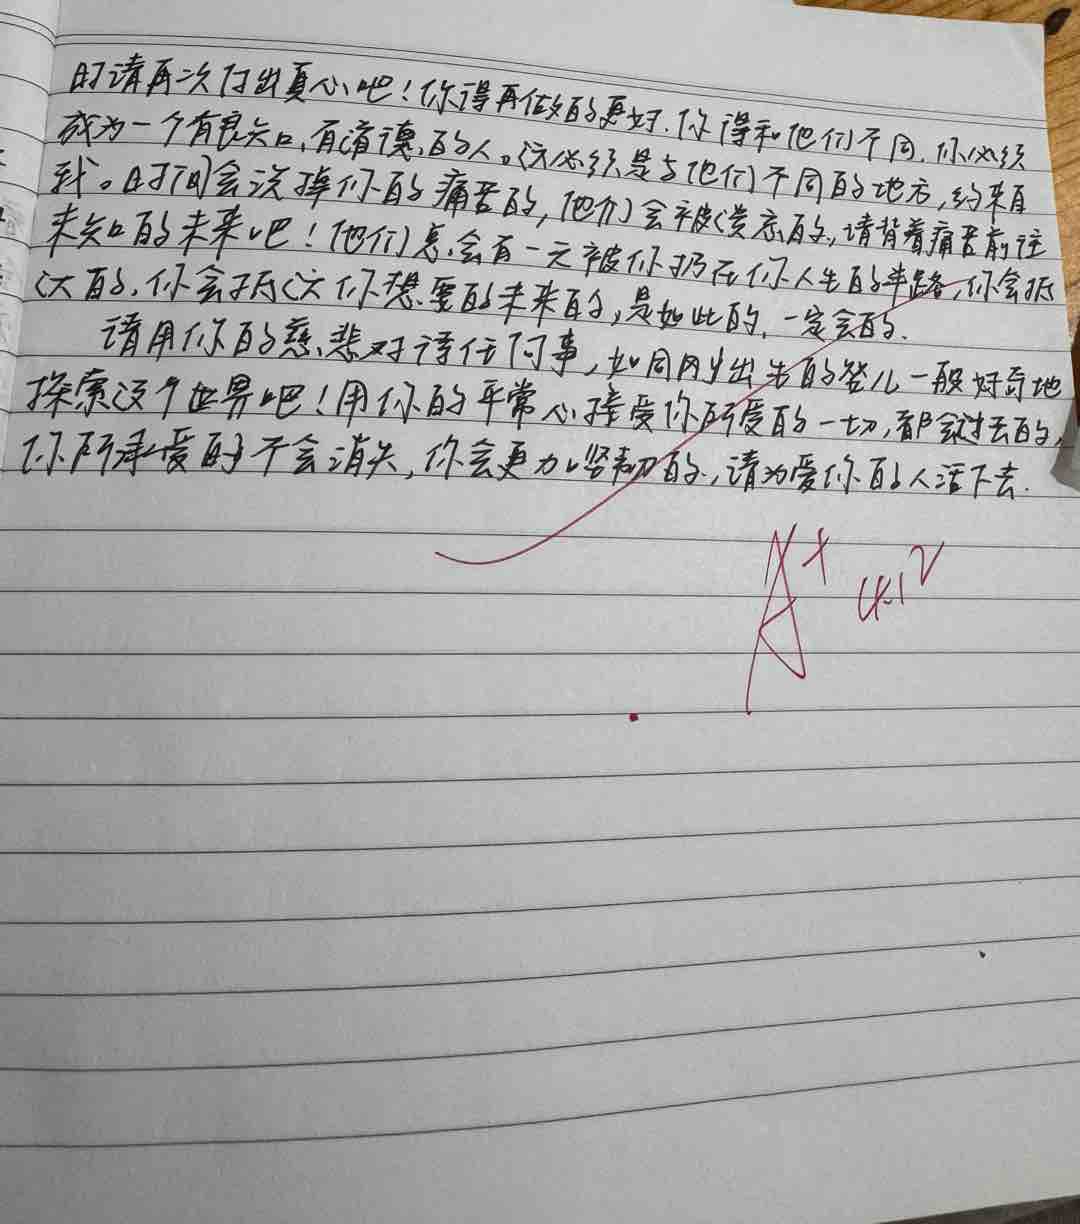 时请再次付出真心吧！你得再做的更好.你得和他们不同.你必须
成为一个有良知,有道德,的人。这必须是与他们不同的地方,约来自
我。时间会洗掉你的痛苦的,他们会被遗忘的,请背着痛苦前往
未知的未来吧！他们总会有一天被你扔在你人生的半路,你会抵
达的,你会抵达你想要的未来的,是如此的,一定会的.
请用你的慈悲对待任何事,如同刚出生的婴儿一般好奇地
探索这个世界吧！用你的平常心接受你所爱的一切,都会过去的,
你所承受的不会消失,你会更加坚韧的.,请为爱你的人活下去.
A+ 4.12